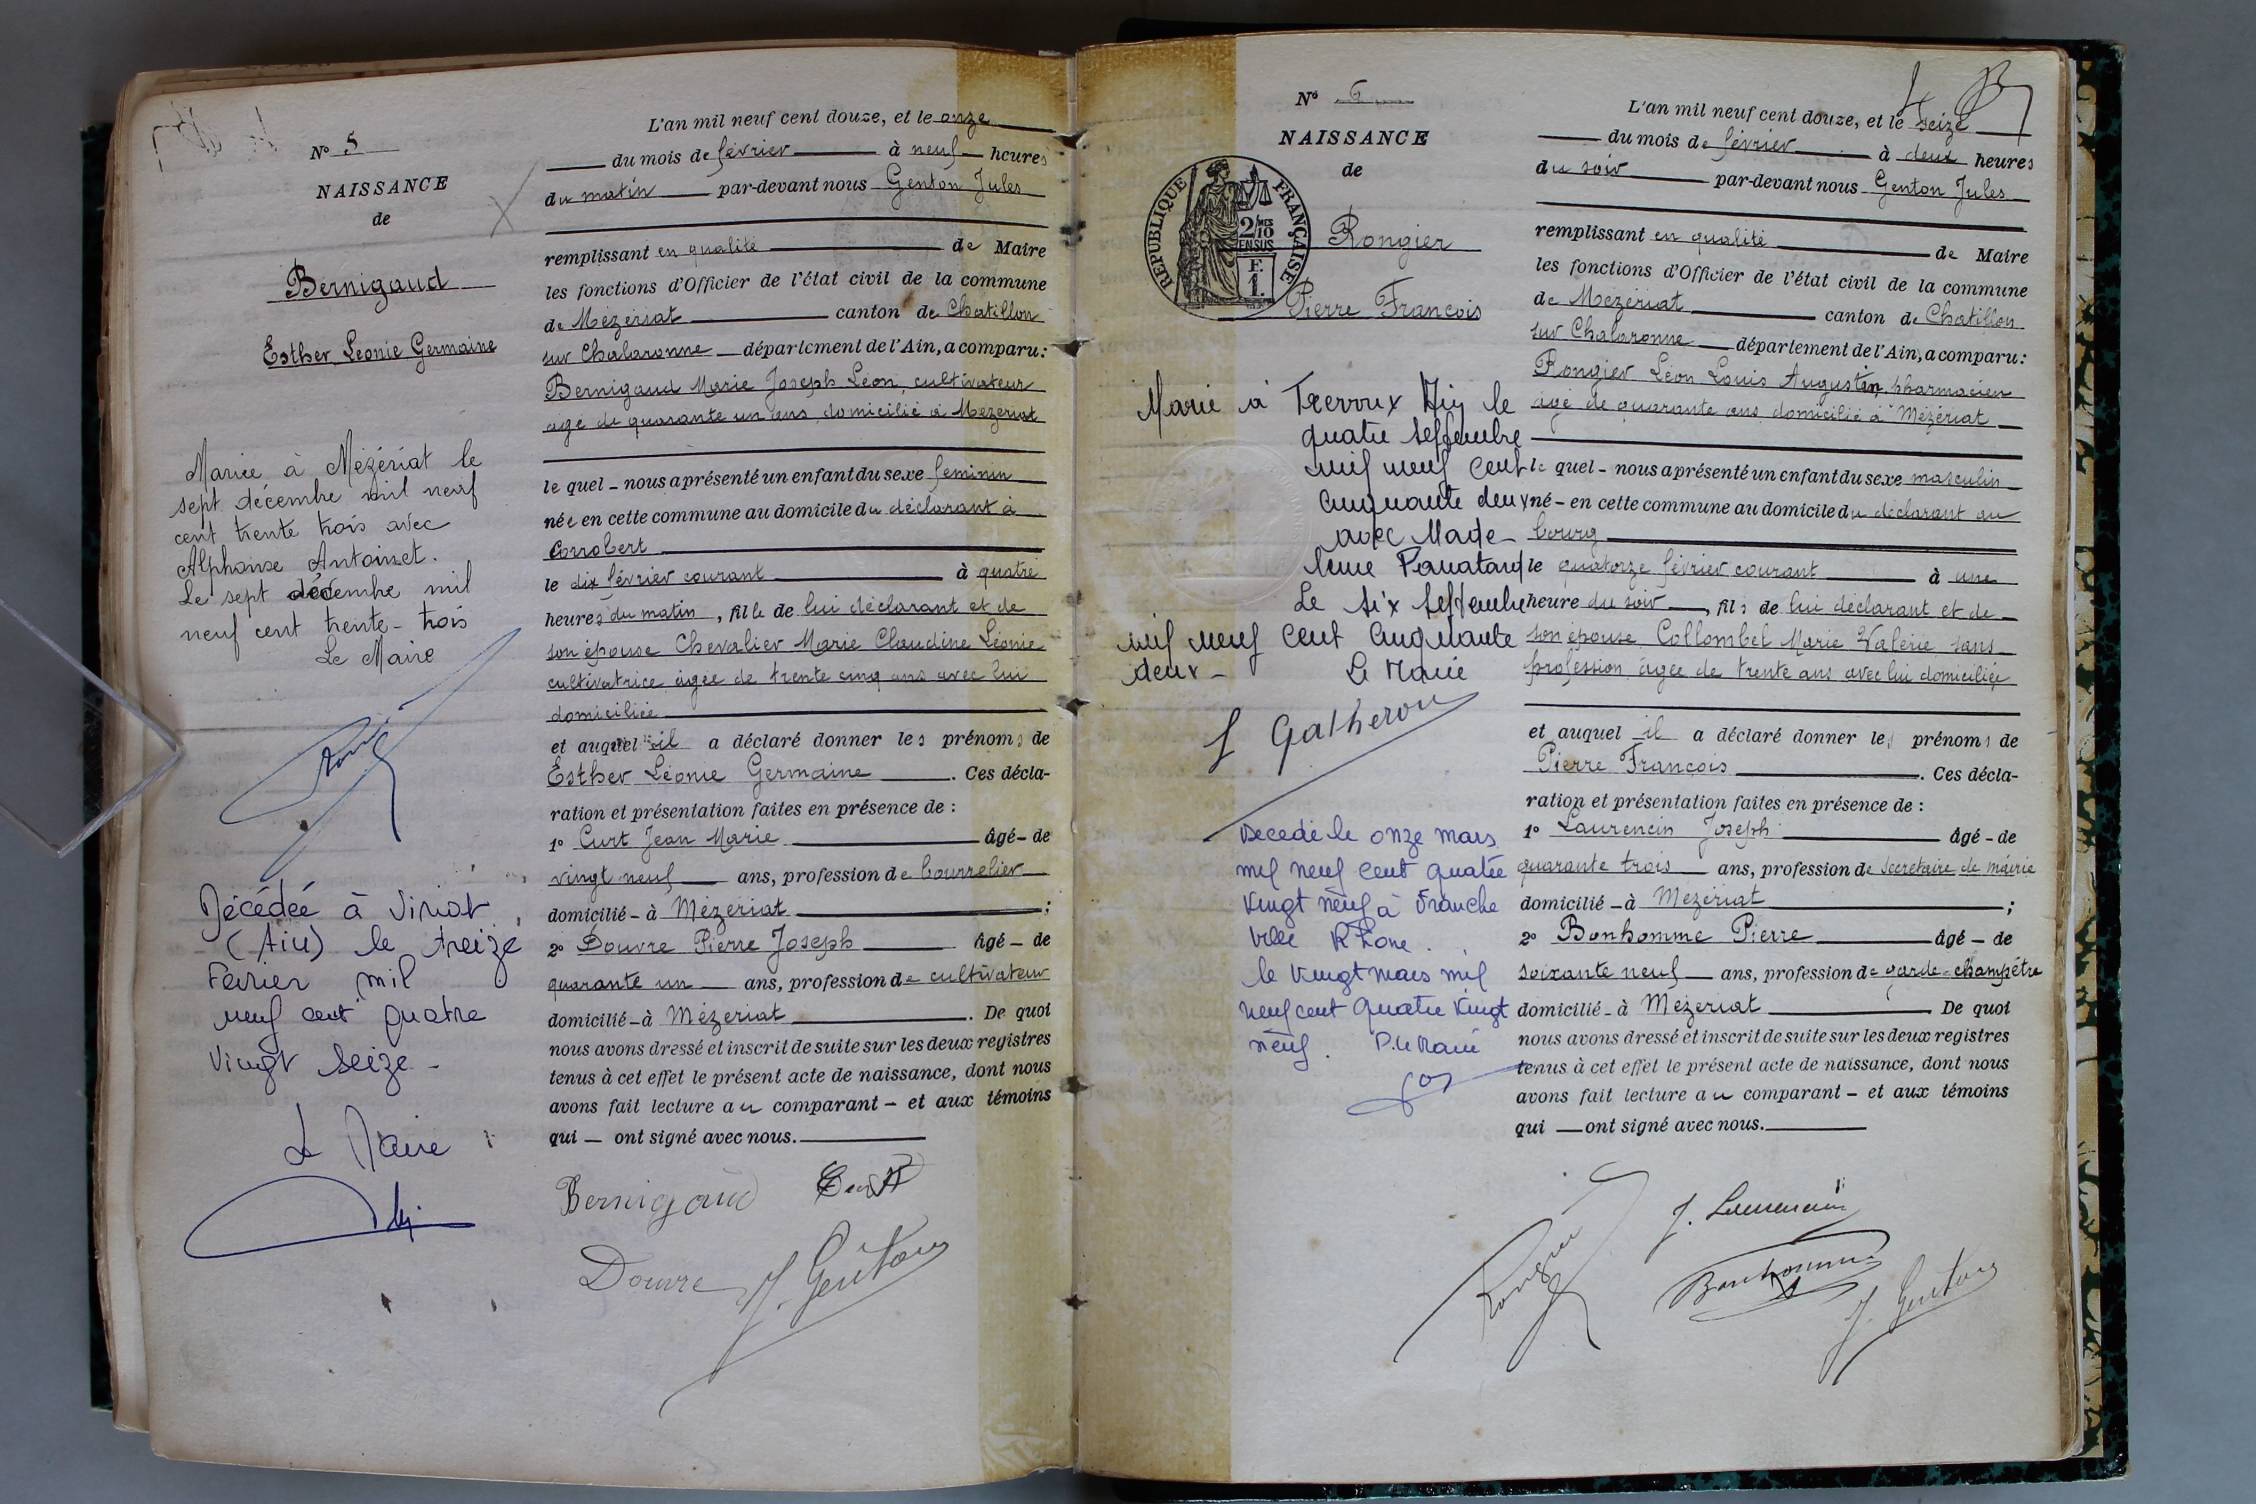 N° 5
NAISSANCE
de
Bernigaud
Esther Léonie Germaine
Mariée à Mézériat le
sept décembre mil neuf
cent trente trois avec
Alphonse Antoinet.
Le sept décembre mil
neuf cent trente-trois
Le Maire
Décédée à Viriat
(Ain) le treize
Février mil
neuf cent quatre
vingt seize -
Le Maire
L'an mil neuf cent douze, et le onze
du mois de février à neuf heures
du matin par-devant nous Genton Jules
remplissant en qualité de Maire
les fonctions d'Officier de l'état civil de la commune
de Mézériat canton de Chatillon
sur Chalaronne département de l'Ain, a comparu :
Bernigaud Marie Joseph Léon, cultivateur
agé de quarante un ans domicilié à Mézériat
le quel - nous a présenté un enfant du sexe féminin
née en cette commune au domicile du déclarant à
Corrobert
le dix février courant à quatre
heures du matin, fille de lui déclarant et de
son épouse Chevalier Marie Claudine Léonie
cultivatrice agée de trente cinq ans avec lui
domiciliée
et auquel il a déclaré donner les prénoms de
Esther Léonie Germaine. Ces décla-
ration et présentation faites en présence de :
1° Curt Jean Marie âgé - de
vingt neuf ans, profession de bourrelier
domicilié - à Mézériat ;
2° Douvre Pierre Joseph âgé - de
quarante un ans, profession de cultivateur
domicilié - à Mézériat. De quoi
nous avons dressé et inscrit de suite sur les deux registres
tenus à cet effet le présent acte de naissance, dont nous
avons fait lecture au comparant - et aux témoins
qui - ont signé avec nous.
Bernigaud Curt
Douvre J. Genton
N° 6
NAISSANCE
de
REPUBLIQUE FRANÇAISE
2/10 MES
EN SUS
F.
1.
Rongier
Pierre François
Marié à Trevoux Ain le
quatre septembre
mil neuf cent
cinquante deux
avec Made-
leine
Le six septembre
mil neuf cent cinquante
deux -
Le Maire
J Gatheron
Décédé le onze mars
mil neuf cent quatre
vingt neuf à Franche
ville Rhône.
le vingt mars mil
neuf cent quatre vingt
neuf. P. le Maire
L'an mil neuf cent douze, et le seize
du mois de février à deux heures
du soir par-devant nous Genton Jules
remplissant en qualité de Maire
les fonctions d'Officier de l'état civil de la commune
de Mézériat canton de Chatillon
sur Chalaronne département de l'Ain, a comparu :
Rongier Léon Louis Augustin, pharmacien
agé de quarante ans domicilié à Mézériat
le quel - nous a présenté un enfant du sexe masculin
né - en cette commune au domicile du déclarant au
bourg
le quatorze février courant à une
heure du soir, fils de lui déclarant et de
son épouse Collombet Marie Valérie sans
profession agée de trente ans avec lui domiciliée
et auquel il a déclaré donner les prénoms de
Pierre François. Ces décla-
ration et présentation faites en présence de :
1° Laurencin Joseph âgé - de
quarante trois ans, profession de secrétaire de mairie
domicilié - à Mézériat ;
2° Bonhomme Pierre âgé - de
soixante neuf ans, profession de garde-champêtre
domicilié - à Mézériat De quoi
nous avons dressé et inscrit de suite sur les deux registres
tenus à cet effet le présent acte de naissance, dont nous
avons fait lecture au comparant - et aux témoins
qui - ont signé avec nous.
Rongier J. Laurencin
Bonhomme J. Genton